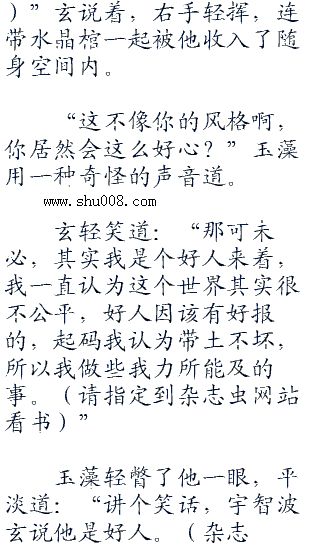 ）”玄说着，右手轻挥，连
带水晶棺一起被他收入了随
身空间内。
“这不像你的风格啊，
你居然会这么好心？”玉藻
用一种奇怪的声音道。
www.shu008.com
玄轻笑道：“那可未
必，其实我是个好人来着，
我一直认为这个世界其实很
不公平，好人因该有好报
的，起码我认为带土不坏，
所以我做些我力所能及的
事。（请指定到杂志虫网站
看书）”
玉藻轻瞥了他一眼，平
淡道：“讲个笑话，宇智波
玄说他是好人。（杂志